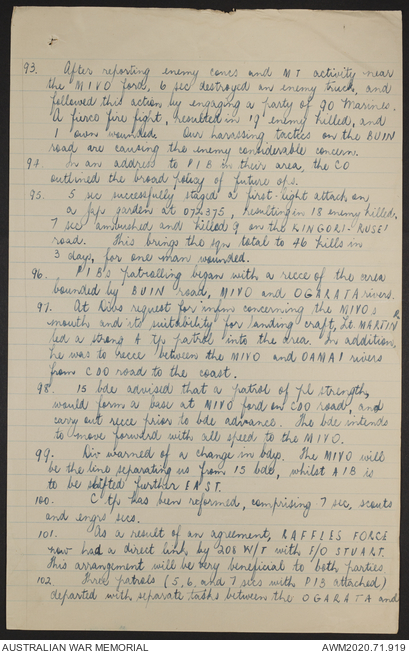 93. After reporting enemy cones and MT activity near
the MIVO ford, 6 sec destroyed an enemy truck, and
followed this action by engaging a party of 90 Marines.
A fierce fire fight, resulted in 19 enemy killed, and
1 own wounded. Our harassing tactics on the BUIN
road are causing the enemy considerable concern.
94. In an address to PIB in their area, the CO
outlined the broad policy of future ops.
95. 5 sec successfully staged a first-light attack on
a Jap garden at 072375, resulting in 18 enemy killed.
7 sec ambushed and killed 9 on the KINGORI-RUSEI
road. This brings the sqn total to 46 kills in
3 days, for one man wounded.
96. PIB's patrolling began with a recce of the area
bounded by BUIN road, MIVO and OGARATA rivers.
97. At Divs request for infm concerning the MIVOs
mouth and its suitability for landing craft, Lt. MARTIN
led a strong A tp patrol into the area. In addition,
he was to recce between the MIVO and OAMAI rivers
from CDO road to the coast.
98. 15 bde advised that a patrol of pl strength,
would form a base at MIVO ford on CDO road, and
carry out recce prior to bde advance. The bde intends
to move forward with all speed to the MIVO.
99. Div warned of a change in bdy. The MIVO will
be the line separating us from 15 bde, whilst AIB is
to be shifted further EAST.
100. C tp has been reformed, comprising 7 sec, scouts
and engrs secs.
101. As a result of an agreement, RAFFLES FORCE
now had a direct link by 208 W/T with F/O STUART.
This arrangement will be very beneficial to both parties
102. Three patrols (5, 6 and 7 secs with PIB attached)
departed with separate tasks between the OGARATA and
AUSTRALIAN WAR MEMORIAL
AWM2020.71.919